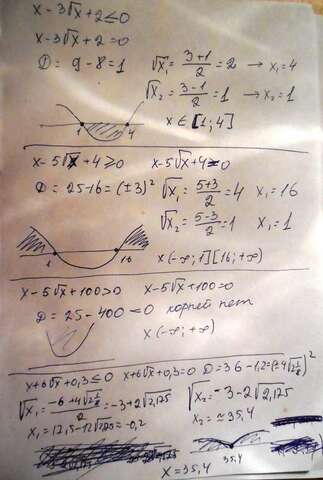 x - 3√x + 2 ≤ 0
x - 3√x + 2 = 0
D = 9 - 8 = 1   √x₁ = (3+1)/2 = 2 → x₁ = 4
√x₂ = (3-1)/2 = 1 → x₂ = 1
1   4   x ∈ [1; 4]
x - 5√x + 4 ≥ 0   x - 5√x + 4 = 0
D = 25-16 = (±3)²   √x₁ = (5+3)/2 = 4   x₁ = 16
√x₂ = (5-3)/2 = 1   x₂ = 1
1   16   x (-∞; 1] [16; +∞)
x - 5√x + 100 > 0   x - 5√x + 100 = 0
D = 25 - 400 < 0 корней нет
x (-∞; +∞)
x + 6√x + 0,3 ≤ 0   x + 6√x + 0,3 = 0   D = 36 - 1,2 =
√x₁ = = -3 + 2√2,175   √x₂ = -3 - 2√2,175
x₁ = = -0,2   x₂ = ≈ 35,4
35,4
x = 35,4